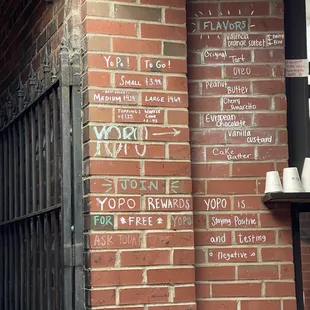 YoPo! To Go!
Small $3.79
Medium Large
YOPO →
JOIN
YOPO REWARDS
FOR *FREE* YOPO
ASK TODAY
FLAVORS
Valencia
orange sorbet
Original Tart
Oreo
Peanut Butter
Cherry
Amaretto
European
Chocolate
Vanilla
custard
Cake
batter
YOPO IS
Staying POSITIVE
and testing
Negative